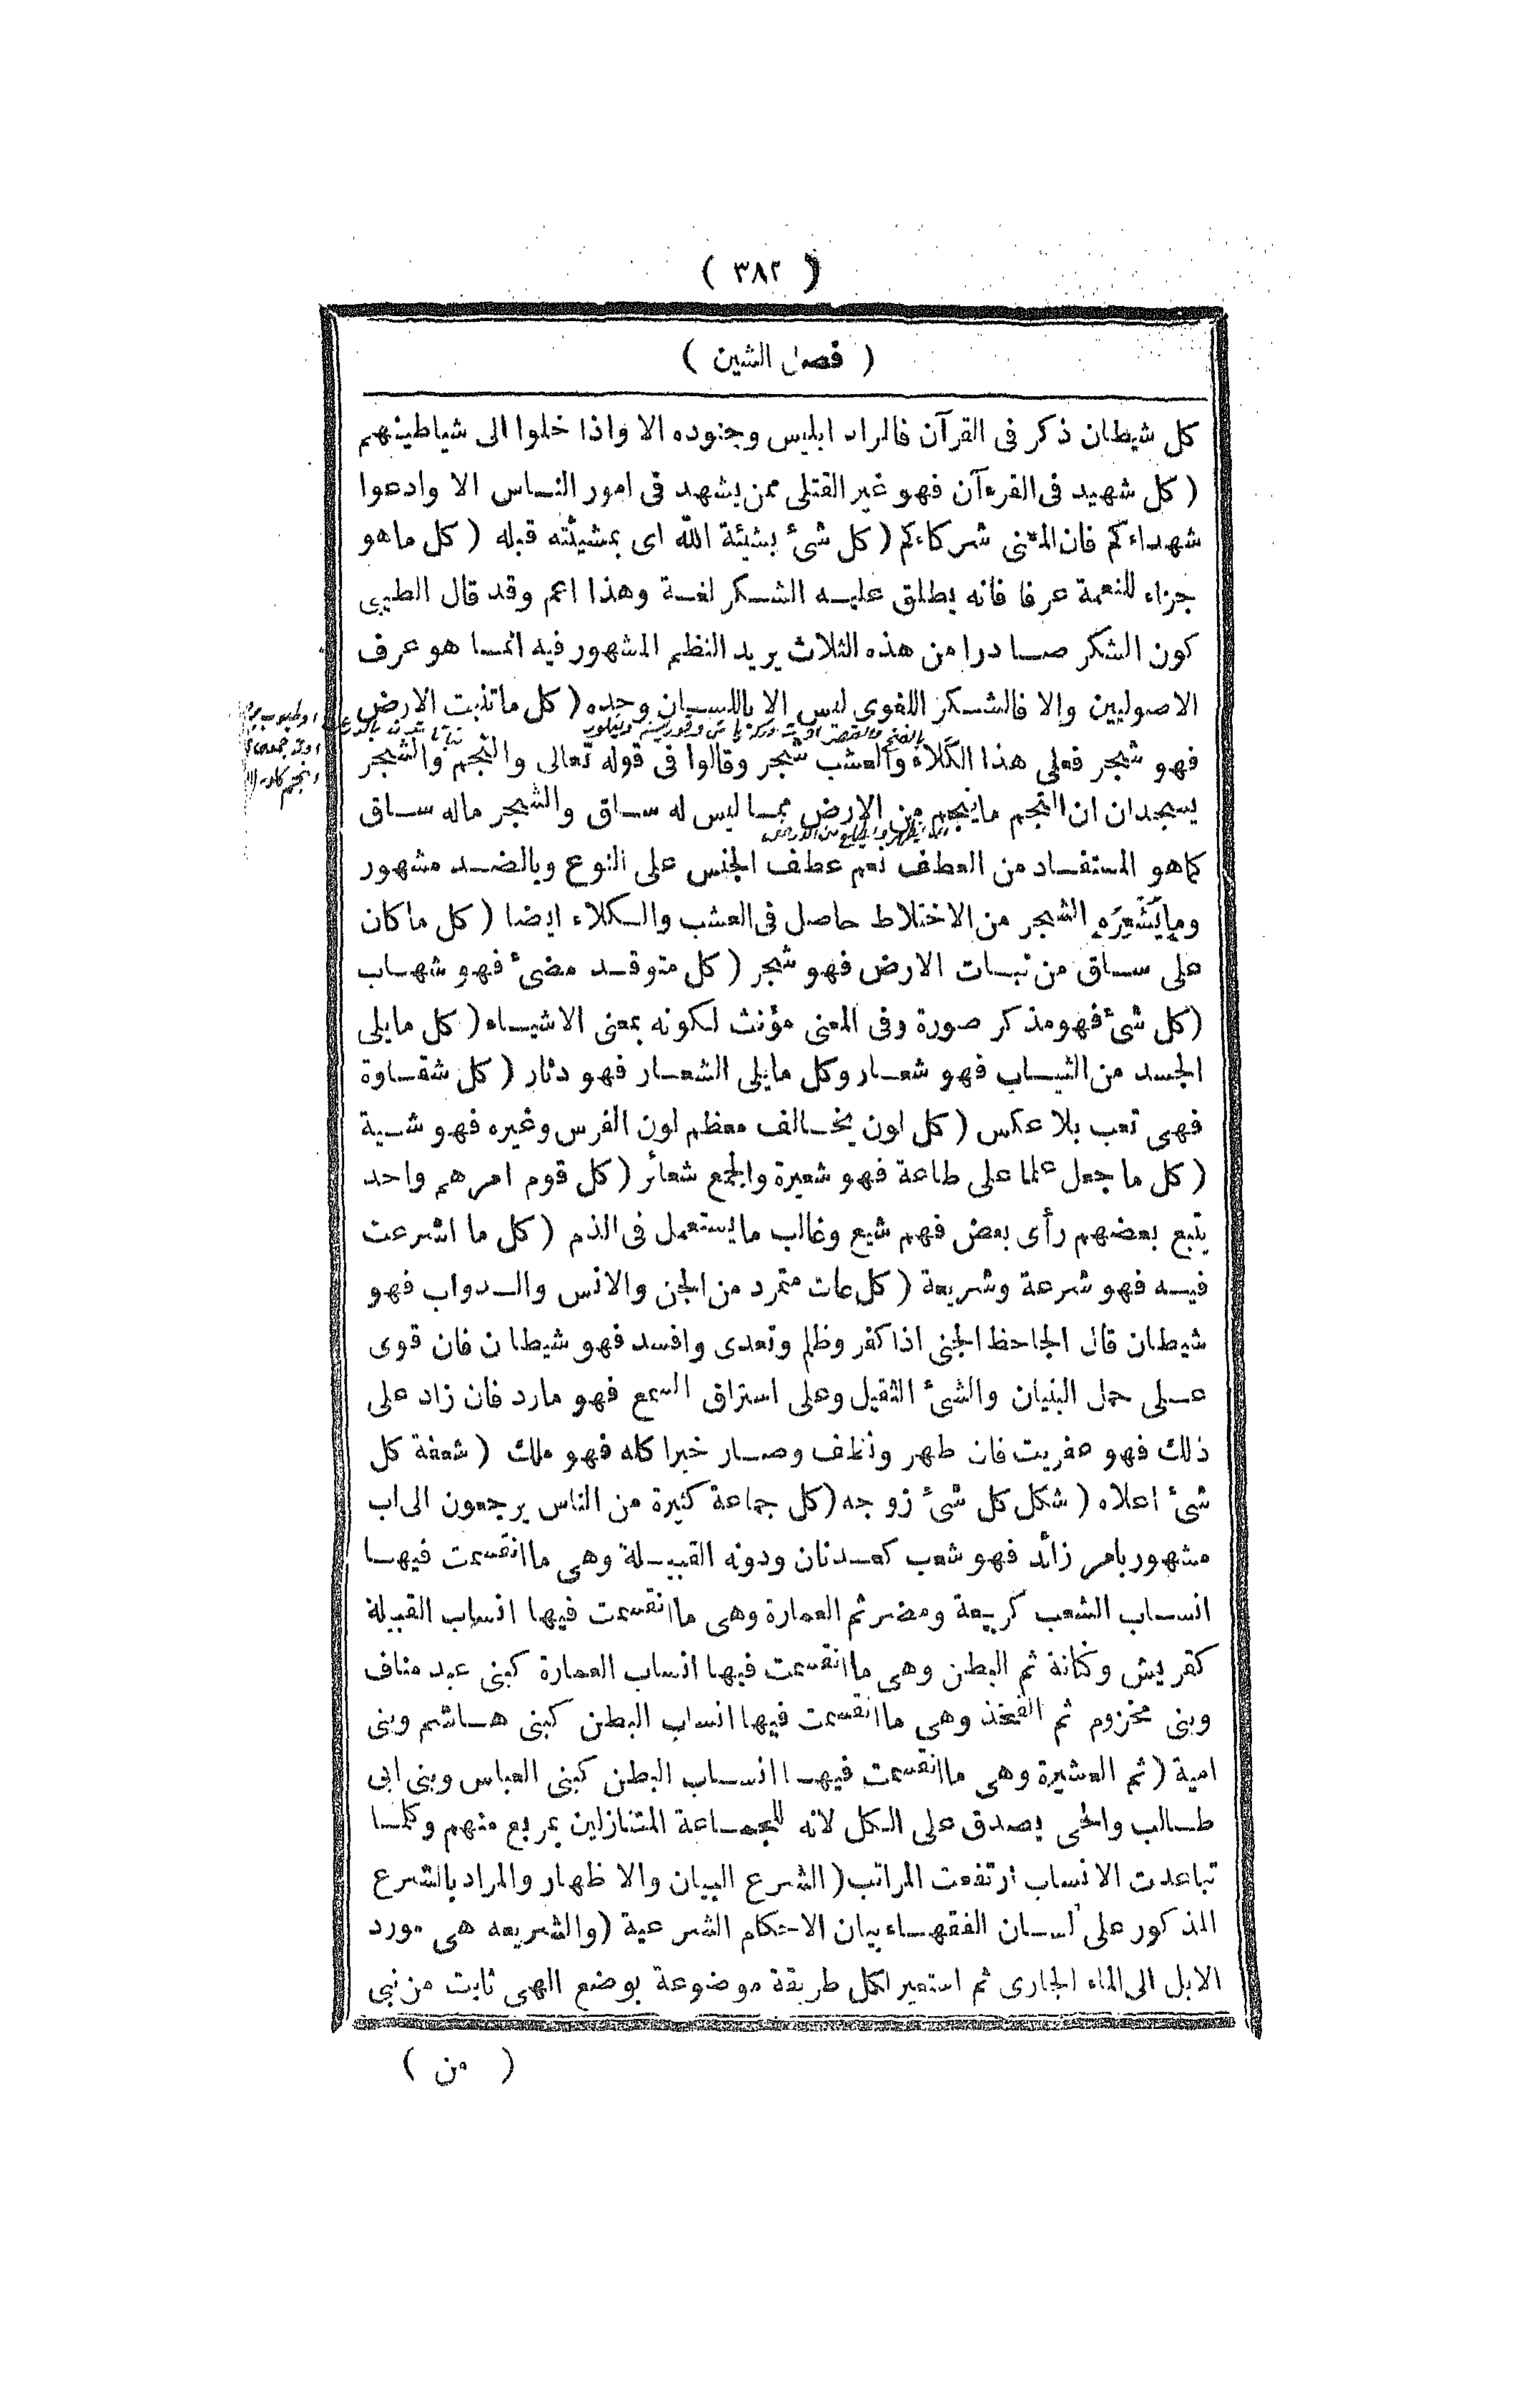 ( ٣٨٢ )
( فصل الشين )
كل شيطان ذكر فى القرآن فالمراد ابليس وجنوده الا واذا خلوا الى شياطينهم
( كل شهيد فى القرءآن فهو غير القتلى ممن يشهد فى امور النـاس الا وادعوا
شهداءكم فان المعنى شركاءكم ( كل شئ بشيئة الله اى بمشيئته قبله ( كل ماهو
جزاء للنعمة عرفا فانه يطلق عليـه الشـكر لغـة وهذا اعم وقد قال الطيبى
كون الشكر صـادرا من هذه الثلاث يريد النظم المشهور فيه انمـا هو عرف
الاصوليين والا فالشـكر اللغوى ليس الا باللسـان وحده ( كل ماتنبت الارض
فهو شجر فعلى هذا الكَلَاء والعشب شجر وقالوا فى قوله تعالى والنجم والشجر
يسجدان ان النجم ماينجم من الارض ممـا ليس له سـاق والشجر ماله سـاق
كماهو المستفـاد من العطف نعم عطف الجنس على النوع وبالضـد مشهور
ومايَشْعِرَه الشجر من الاختلاط حاصل فى العشب والـكلاء ايضا ( كل ماكان
على سـاق من نبـات الارض فهو شجر ( كل متوقـد مضئ فهو شهـاب
( كل شئ فهو مذكر صورة وفى المعنى مؤنث لكونه بمعنى الاشيـاء ( كل مايلى
الجسد من الثيـاب فهو شعـار وكل مايلى الشعـار فهو دثار ( كل شقـاوة
فهى تعب بلا عكس ( كل لون يخـالف معظم لون الفرس وغيره فهو شـية
( كل ما جعل علما على طاعة فهو شعيرة والجمع شعائر ( كل قوم امرهم واحد
يتبع بعضهم رأى بعض فهم شيع وغالب مايستعمل فى الذم ( كل ما اشرعت
فيـه فهو شرعة وشريعة ( كل عات متمرد من الجن والانس والـدواب فهو
شيطان قال الجاحظ الجنى اذا كفر وظلم وتعدى وافسد فهو شيطان فان قوى
عـلى حمل البنيان والشئ الثقيل وعلى استراق السمع فهو مارد فان زاد على
ذلك فهو عفريت فان طهر ونظف وصـار خيرا كله فهو ملك ( شعفة كل
شئ اعلاه ( شكل كل شئ زوجه ( كل جماعة كثيرة من الناس يرجعون الى اب
مشهور بامر زائد فهو شعب كعـدنان ودونه القبيـلة وهى ما انقسمت فيهـا
انسـاب الشعب كربيعة ومضر ثم العمارة وهى ما انقسمت فيها انساب القبيلة
كقريش وكنانة ثم البطن وهى ما انقسمت فيها انساب العمارة كبنى عبد مناف
وبنى مخزوم ثم الفخذ وهى ما انقسمت فيها انساب البطن كبنى هـاشم وبنى
امية ( ثم العشيرة وهى ما انقسمت فيهـا انسـاب البطن كبنى العباس وبنى ابى
طـالب والحى يصدق على الـكل لانه للجمـاعة المتنازلين بمربع منهم وكلمـا
تباعدت الانساب ارتفعت المراتب ( الشرع البيان والاظهار والمراد بالشرع
المذكور على لسـان الفقهـاء بيان الاحكام الشرعية ( والشريعه هى مورد
الابل الى الماء الجارى ثم استعير لكل طريقة موضوعة بوضع الهى ثابت من نبى
( من )